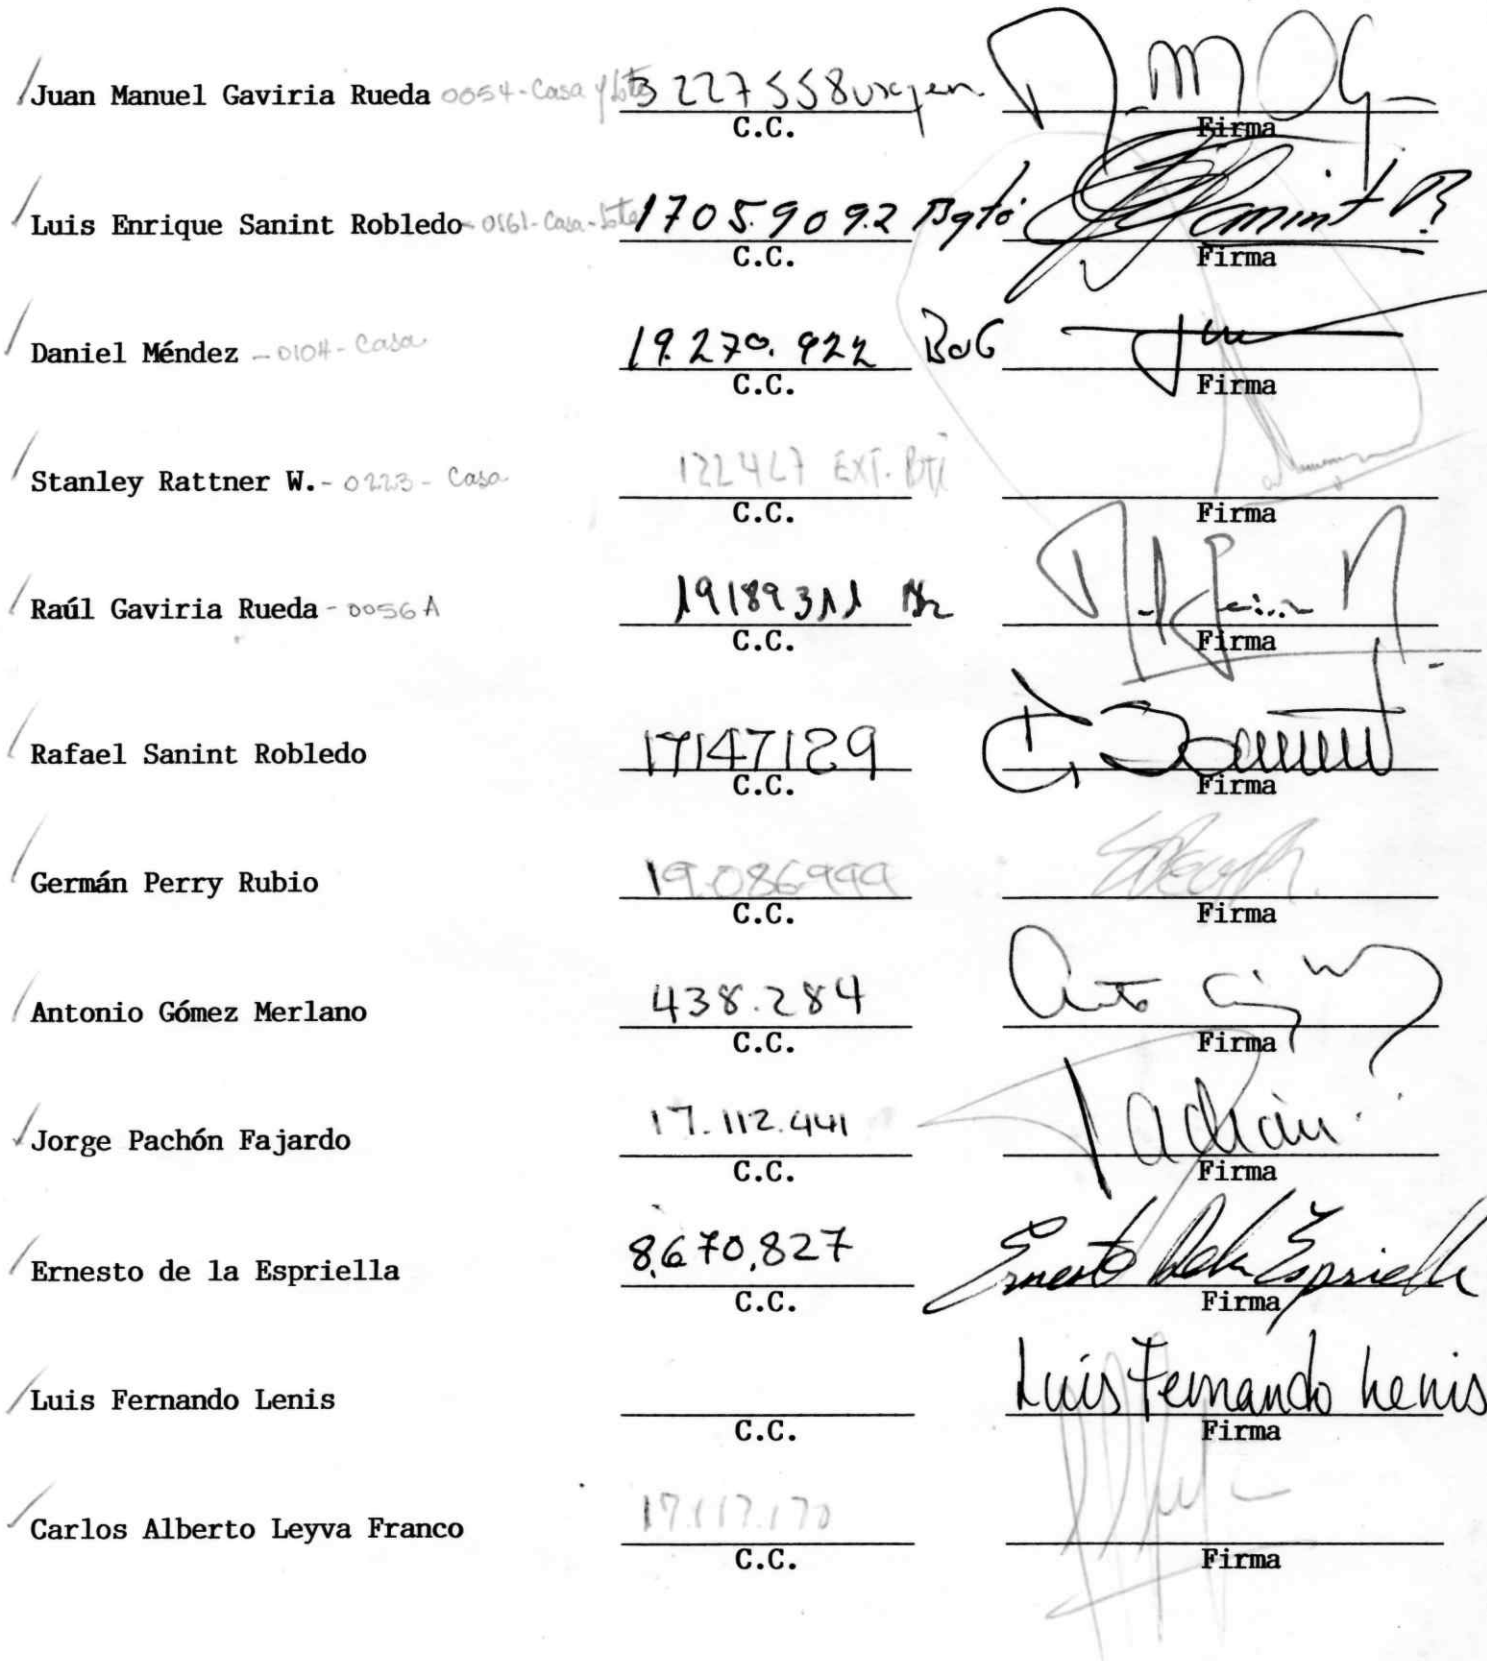 Juan Manuel Gaviria Rueda 0054-Casa y Lote 3227558 Usaquen
C.C. Firma
Luis Enrique Sanint Robledo - 0161-Casa-Lote 17059092 Bgtó Sanint R
C.C. Firma
Daniel Méndez - 0104 - Casa 19.270.922 BoG
C.C. Firma
Stanley Rattner W. - 0223 - Casa 122427 EXT. BTÁ
C.C. Firma
Raúl Gaviria Rueda - 0056A 19189311
C.C. Firma
Rafael Sanint Robledo 17147129 Sanint
C.C. Firma
Germán Perry Rubio 19.086999
C.C. Firma
Antonio Gómez Merlano 438.284
C.C. Firma
Jorge Pachón Fajardo 17.112.441 Pachón
C.C. Firma
Ernesto de la Espriella 8,670,827 Ernesto de la Espriella
C.C. Firma
Luis Fernando Lenis Luis Fernando Lenis
C.C. Firma
Carlos Alberto Leyva Franco 17.117.170
C.C. Firma